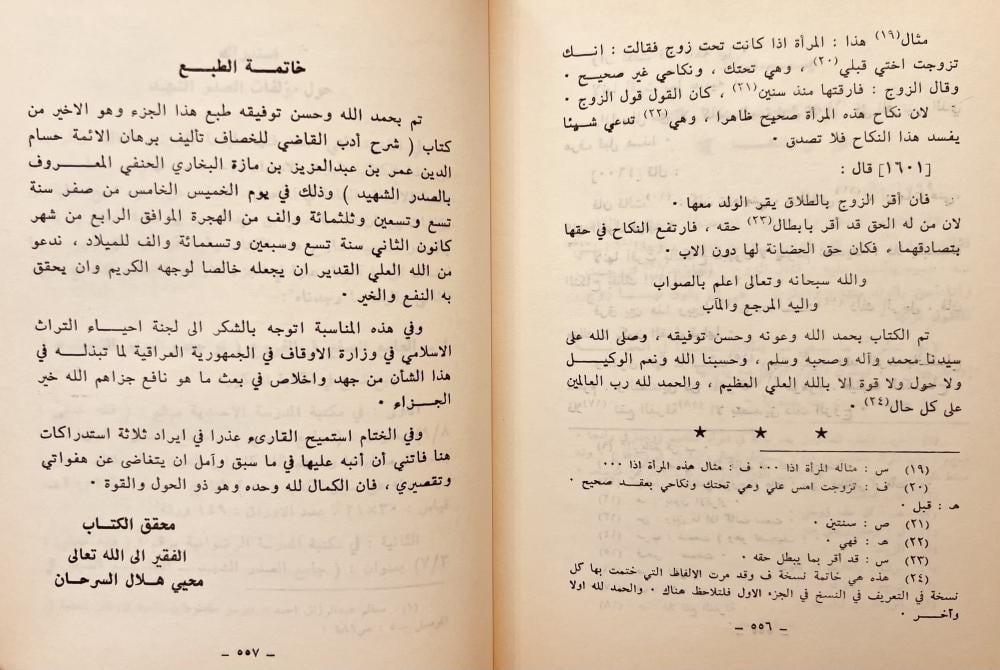 مثال(١٩) هذا : المرأة اذا كانت تحت زوج فقالت : انك
تزوجت اختي قبلي(٢٠) ، وهي تحتك ، ونكاحي غير صحيح ٠
وقال الزوج : فارقتها منذ سنين(٢١) ، كان القول قول الزوج ٠
لان نكاح هذه المرأة صحيح ظاهرا ، وهي(٢٢) تدعي شيئا
يفسد هذا النكاح فلا تصدق ٠
[١٦٠١] قال :
فان أقر الزوج بالطلاق يقر الولد معها ٠
لان من له الحق قد أقر بابطال(٢٣) حقه ، فارتفع النكاح في حقها
بتصادقهماء ، فكان حق الحضانة لها دون الاب ٠
والله سبحانه وتعالى اعلم بالصواب
واليه المرجع والمآب
تم الكتاب بحمد الله وعونه وحسن توفيقه ، وصلى الله على
سيدنا محمد وآله وصحبه وسلم ، وحسبنا الله ونعم الوكيل
ولا حول ولا قوة الا بالله العلي العظيم ، والحمد لله رب العالمين
على كل حال(٢٤) ٠
★ ★ ★
(١٩) س : مثاله المرأة اذا ٠٠٠ ف : مثال هذه المرأة اذا ٠٠٠
(٢٠) ف : تزوجت امس علي وهي تحتك ونكاحي بعقد صحيح ٠
هـ : قبل ٠
(٢١) ص : سنتين ٠
(٢٢) هـ : فهي ٠
(٢٣) س : قد أقر بما يبطل حقه ٠
(٢٤) هذه هي خاتمة نسخة ف وقد مرت الالفاظ التي ختمت بها كل
نسخة في التعريف في النسخ في الجزء الاول فلتلاحظ هناك ٠ والحمد لله اولا
وآخر ٠
– ٥٥٦ –
خاتمة الطبع
تم بحمد الله وحسن توفيقه طبع هذا الجزء وهو الاخير من
كتاب ( شرح أدب القاضي للخصاف تأليف برهان الائمة حسام
الدين عمر بن عبدالعزيز بن مازة البخاري الحنفي المعروف
بالصدر الشهيد ) وذلك في يوم الخميس الخامس من صفر سنة
تسع وتسعين وثلثمائة والف من الهجرة الموافق الرابع من شهر
كانون الثاني سنة تسع وسبعين وتسعمائة والف للميلاد ، ندعو
من الله العلي القدير ان يجعله خالصا لوجهه الكريم وان يحقق
به النفع والخير ٠
وفي هذه المناسبة اتوجه بالشكر الى لجنة احياء التراث
الاسلامي في وزارة الاوقاف في الجمهورية العراقية لما تبذله في
هذا الشأن من جهد واخلاص في بعث ما هو نافع جزاهم الله خير
الجزاء ٠
وفي الختام استميح القارىء عذرا في ايراد ثلاثة استدراكات
هنا فاتني أن أنبه عليها في ما سبق وآمل ان يتغاضى عن هفواتي
وتقصيري ، فان الكمال لله وحده وهو ذو الحول والقوة ٠
محقق الكتاب
الفقير الى الله تعالى
محيي هلال السرحان
– ٥٥٧ –